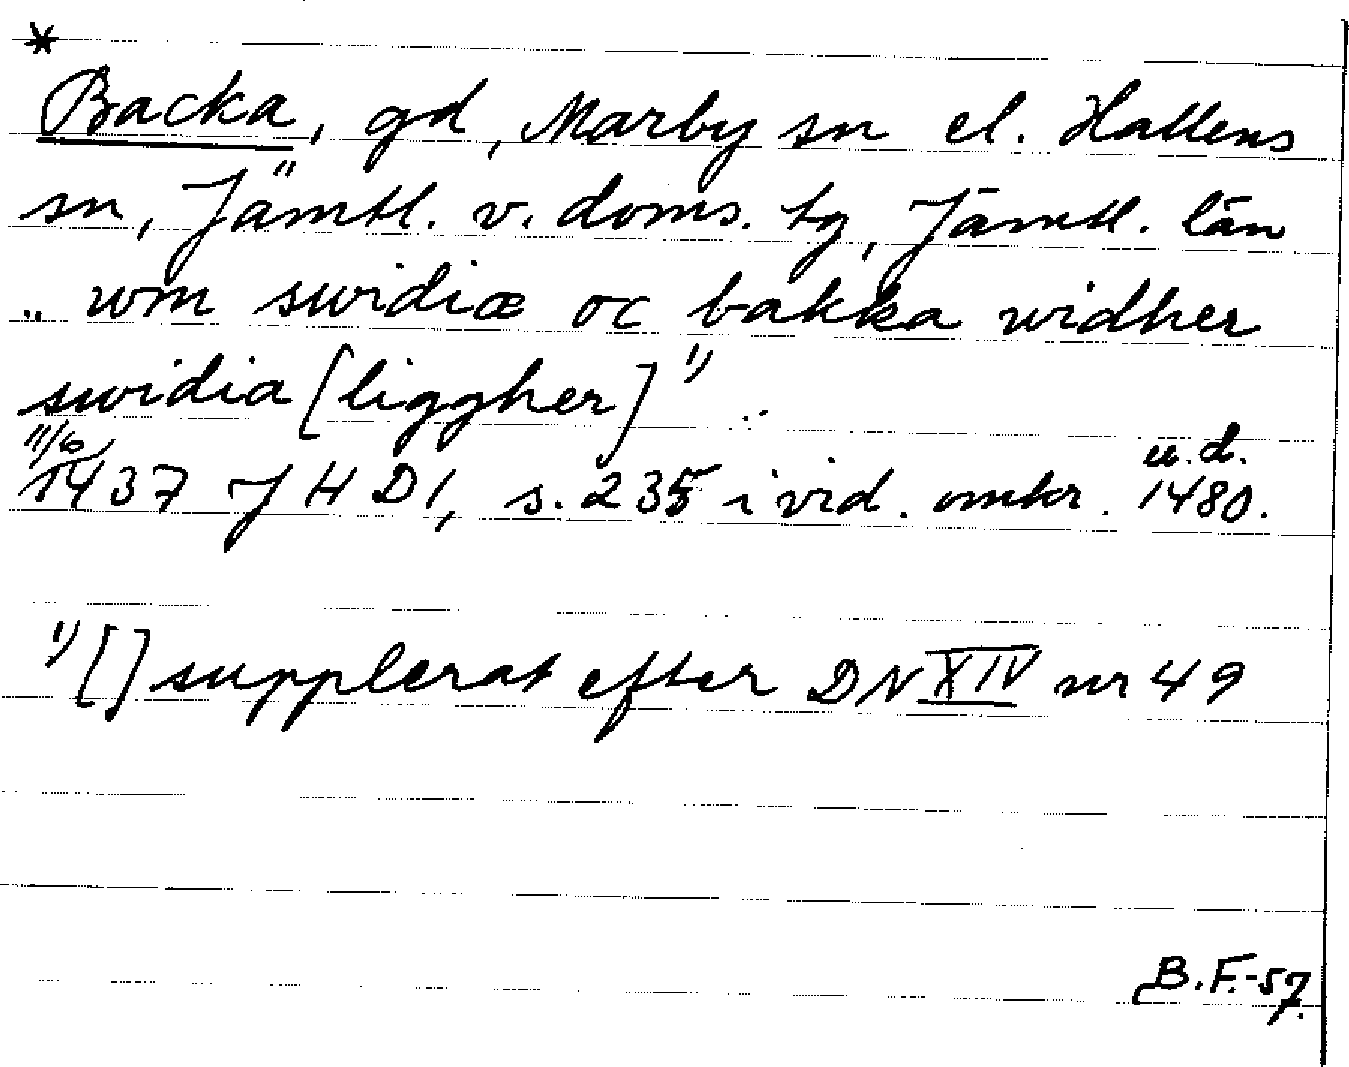 *
Backa, gd, Marby sn el. Hallens
sn, Jämtl. v. doms. tg, Jämtl. län
.. wm swidiæ oc bakka widher
swidia [liggher] 1) ..
11/6 u.d.
1437 JHD1, s. 235 i vid. omkr. 1480.
1) [] supplerat efter DN XIV nr 49
B.F.-57.